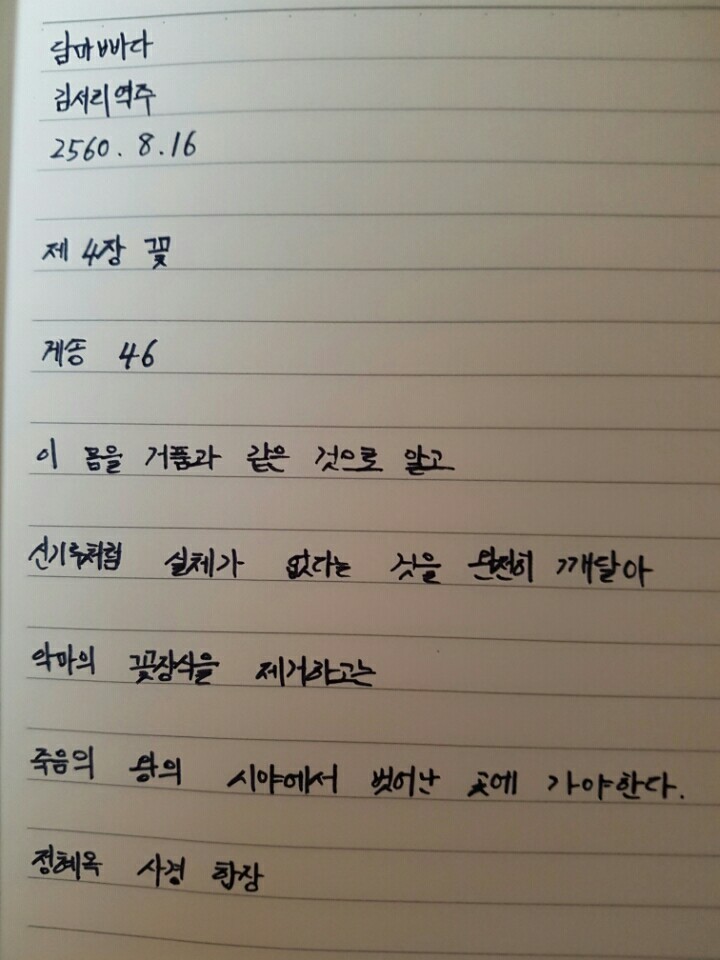 담마빠다
김서리역주
2560. 8. 16
제 4장 꽃
게송 46
이 몸을 거품과 같은 것으로 알고
신기루처럼 실체가 없다는 것을 완전히 깨달아
악마의 꽃장식을 제거하고는
죽음의 왕의 시야에서 벗어난 곳에 가야한다.
정혜옥 사경 합장